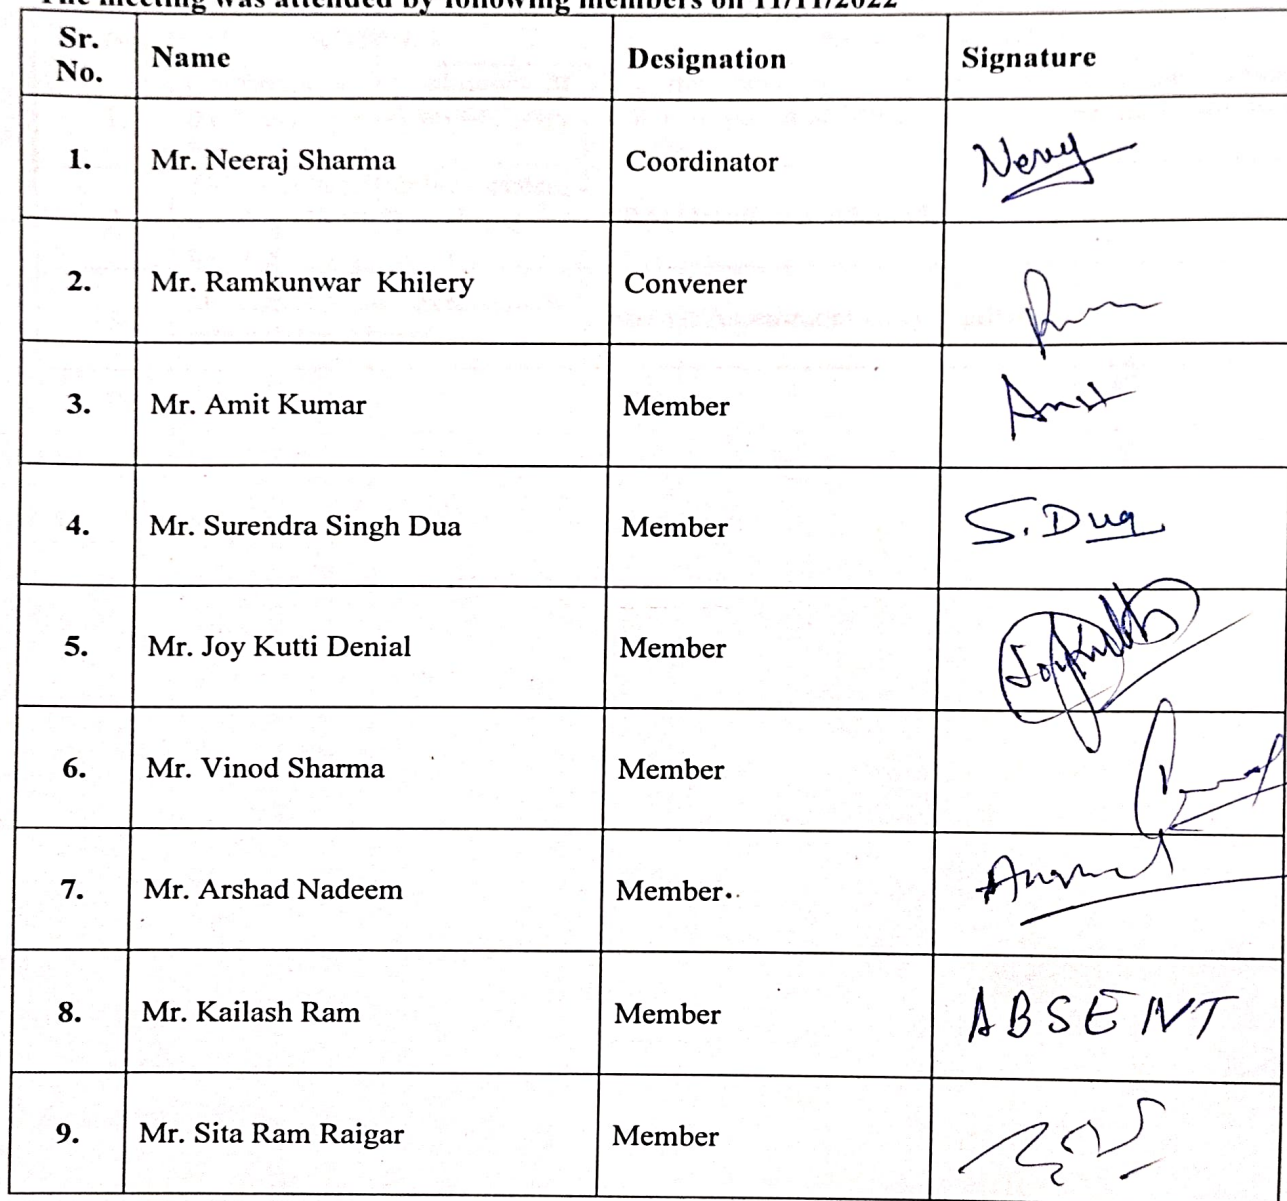 The meeting was attended by following members on 11/11/2022
Sr. No. Name Designation Signature
1. Mr. Neeraj Sharma Coordinator
2. Mr. Ramkunwar Khilery Convener
3. Mr. Amit Kumar Member Amit
4. Mr. Surendra Singh Dua Member S. Dua
5. Mr. Joy Kutti Denial Member
6. Mr. Vinod Sharma Member
7. Mr. Arshad Nadeem Member..
8. Mr. Kailash Ram Member ABSENT
9. Mr. Sita Ram Raigar Member